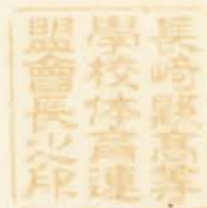 長崎縣高等
學校体育連
盟會長之印